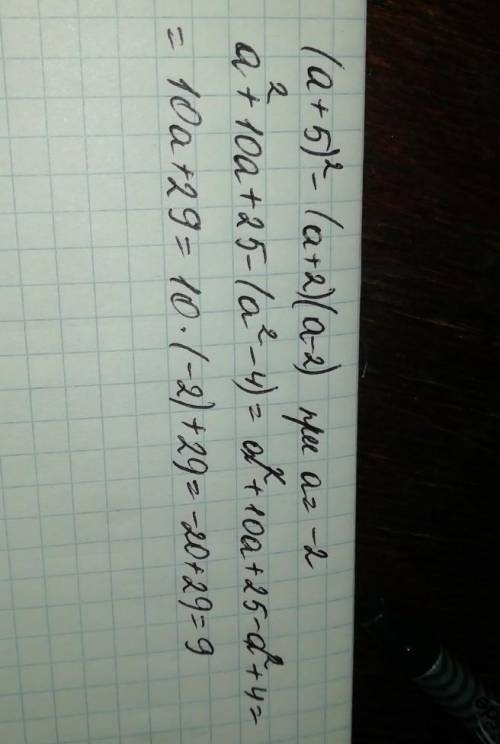 (a+5)² - (a+2)(a-2) при a = -2
a² + 10a + 25 - (a² - 4) = a² + 10a + 25 - a² + 4 =
= 10a + 29 = 10 · (-2) + 29 = -20 + 29 = 9